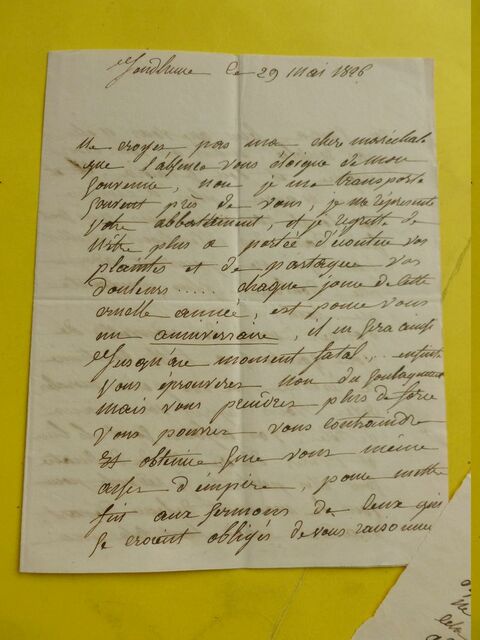 le 29 mai 1826
Ne croyez pas ma cher maréchale
que l'absence vous éloigne de mon
souvenir, non je me transporte
souvent près de vous, je me représente
votre abbattement, et je regrette de
n'être plus a portée d'écouter vos
plaintes et de partager vos
douleurs ..... chaque jour de cette
cruelle année, est pour vous
un anniversaire, il en sera ainsi
jusqu'au moment fatal... ensuite
vous éprouveres non du soulagement
mais vous prendres plus de force
vous pourrez vous contraindre
et obtenir sur vous même
asses d'empire, pour mettre
fin aux sermons de ceux qui
se croient obligés de vous raisonner